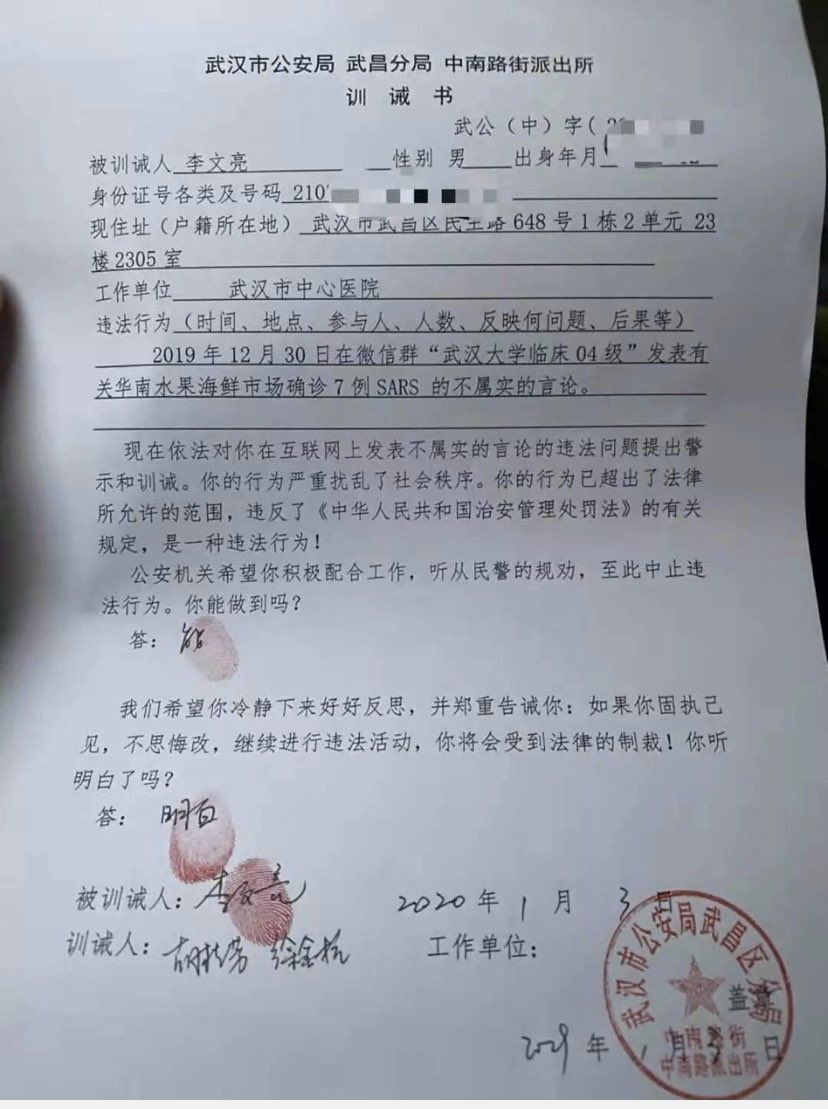 武汉市公安局 武昌分局 中南路街派出所
训 诫 书
武公（中）字（
被训诫人 李文亮 性别 男 出身年月
身份证号各类及号码 210
现住址（户籍所在地） 武汉市武昌区民主路 648 号 1 栋 2 单元 23
楼 2305 室
工作单位 武汉市中心医院
违法行为（时间、地点、参与人、人数、反映何问题、后果等）
2019 年 12 月 30 日在微信群“武汉大学临床 04 级”发表有
关华南水果海鲜市场确诊 7 例 SARS 的不属实的言论。
现在依法对你在互联网上发表不属实的言论的违法问题提出警
示和训诫。你的行为严重扰乱了社会秩序。你的行为已超出了法律
所允许的范围，违反了《中华人民共和国治安管理处罚法》的有关
规定，是一种违法行为！
公安机关希望你积极配合工作，听从民警的规劝，至此中止违
法行为。你能做到吗？
答： 能
我们希望你冷静下来好好反思，并郑重告诫你：如果你固执己
见，不思悔改，继续进行违法活动，你将会受到法律的制裁！你听
明白了吗？
答： 明白
被训诫人： 李文亮 2020 年 1 月 3 日
训诫人： 工作单位：
武汉市公安局武昌区分局
盖章
中南路街
中南路派出所
年 1 月 3 日